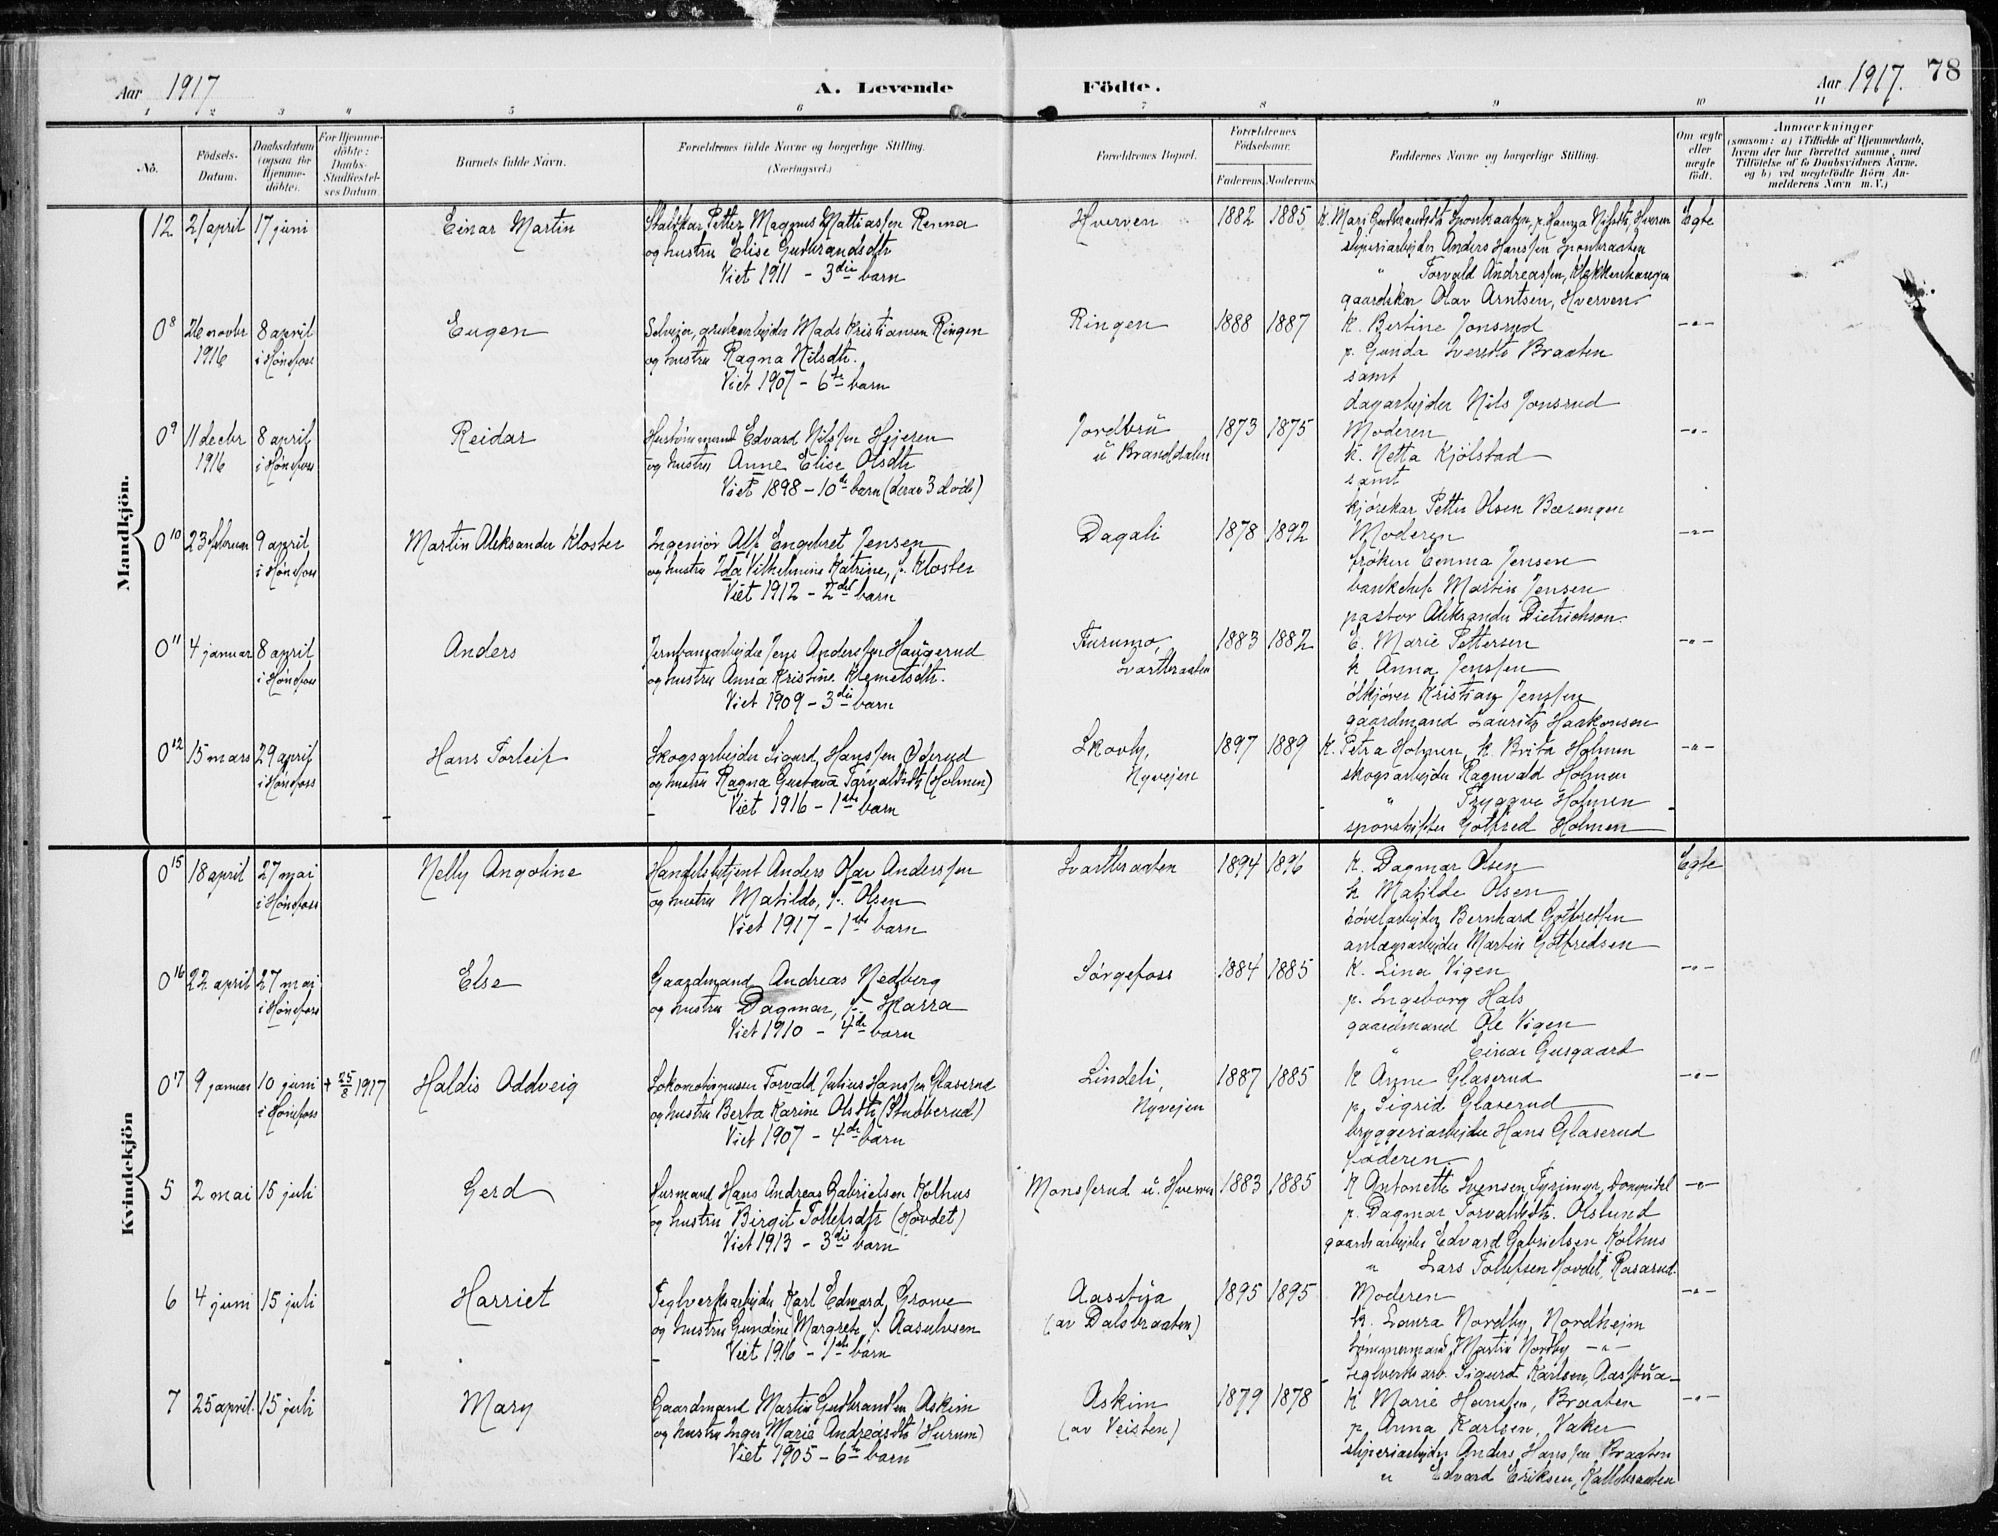 Aar 1917
A. Levende Födte.
Aar 1917. 78
1 2 3 4 5 6 7 8 9 10 11
No.
Födsels-Datum.
Daabsdatum (ogsaa for Hjemmedöbte).
For Hjemmedöbte: Daabs-Stadfæstelses Datum
Barnets fulde Navn.
Forældrenes fulde Navne og borgerlige Stilling. (Næringsvei.)
Forældrenes Bopæl.
Forældrenes Födselsaar.
Faderens. Moderens.
Faddernes Navne og borgerlige Stilling.
Om ægte eller uægte födt.
Anmærkninger
(saasom: a) i Tilfælde af Hjemmedaab, hvem der har forrettet samme, med Tilföielse af to Daabsvidners Navne, og b) ved uægtefödte Börn Anmelderens Navn m. V.)
Mandkjön.
12 21 april 17 juni Einar Martin
Petter Magnus Mattiassen Renna
og hustru Elise Gudbrandsdtr
Viet 1911 - 3die barn
Hverven 1882 1885
K. Mari Gudbrandsdtr p. Hanna Nilsdtr, Hverven
sliperiarbejder Anders Hanssen
" Torvald Andreassen,
gaardskar Olav Arntsen, Hverven
Egte
0 8 26 novbr 1916 8 april i Hönefoss Eugen
Mads Kristiansen Ringen
og hustru Ragna Nilsdtr.
Viet 1907 - 6te barn
Ringen 1888 1887
K. Bertine Jonsrud
p. Gunda Braaten
samt
dagarbejder Nils Jonsrud
-"-
0 9 11 decbr 1916 8 april i Hönefoss Reidar
Edvard Nilssen
og hustru Anne Elise Olsdtr
Viet 1898 - 10de barn (derav 3 döde)
Jordbru
u Branddalen 1873 1875
Moderen
k. Netta Kjölstad
samt
kjörekar Petter Olsen Bærengen
-"-
0 10 23 februar 9 april i Hönefoss Martin Aleksander Kloster
Ingeniör Alf Engebret Jensen
og hustru Ida Vilhelmine Katrine, f. Kloster
Viet 1912 - 2det barn
Dagali 1878 1892
Moderen
fröken Emma Jensen
bankchef Martin Jensen
pastor Aleksander Dietrichson
-"-
0 11 4 januar 8 april i Hönefoss Anders
Jernbanearbejder Jens Anderssen Haugerud
og hustru Anna Kristine Klemetsdtr.
Viet 1909 - 3die barn
Furumo,
Svartbraaten 1883 1882
E. Marie Pettersen
k Anna Jenssen
ölkjörer Kristian Jenssen
gaardmand Lauritz Haakonsen
-"-
0 12 15 mars 29 april i Hönefoss Hans Torleif
Skogsarbejder Sigurd Hanssen Öderud
og hustru Ragna Gustava Torvaldsdtr (Holmen)
Viet 1916 - 1ste barn
Skovly,
Nyvejen 1897 1889
K. Petra Holmen, k Brita Holmen
skogsarbejder Ragnvald Holmen
" Tryggve Holmen
sporskifter Gotfred Holmen
-"-
Kvindekjön
0 15 18 april 27 mai i Hönefoss Nelly Angoline
Handelsbetjent Anders Olav Anderssen
og hustru Matilde, f. Olsen
Viet 1917 - 1ste barn
Svartbraaten 1894 1896
k. Dagmar Olsen
k Matilde Olsen
Bernhard Gotfredsen
anlægsarbejder Martin Gotfredsen
Egte
0 16 22 april 27 mai i Hönefoss Else
Gaardmand Andreas Nedberg
og hustru Dagmar, f. Skarra
Viet 1910 - 4de barn
Sörgefoss 1884 1885
K. Lina Vigen
p. Ingeborg Hals
gaardmand Ole Vigen
" Einar Gusgaard
-"-
0 17 9 januar 10 juni i Hönefoss + 25/8 1917 Haldis Oddveig
Lokomotivpusser Torvald Julius Hanssen Glaserud
og hustru Berta Karine Olsdtr (Stubberud)
Viet 1907 - 4de barn
Lindeli,
Nyvejen 1887 1885
K Anne Glaserud
p. Sigrid Glaserud
bryggeriarbejder Hans Glaserud
faderen
-"-
5 2 mai 15 juli Gerd
Husmand Hans Andreas Gabrielsen Kolhus
og hustru Birgit Tollefsdtr (Hovdet)
Viet 1913 - 3die barn
Monsserud u. Hverven 1883 1885
K Antonette Svensen
p. Dagmar Torvaldsdtr. Olslund
gaardsarbejder Edvard Gabrielsen Kolhus
" Lars Tollefsen Hovdet, Rasarud
-"-
6 4 juni 15 juli Harriet
Teglverksarbejder Karl Edward Growe
og hustru Gundine Margrete f. Aasulvsen
Viet 1916 - 1ste barn
Aasstua
(av Dalsbraaten) 1895 1895
Moderen
k. Laura Nordby, Nordhejm
tömmermand Martin Nordby -"-
teglverksarb. Sigurd Karlsen, Aasstua
-"-
7 25 april 15 juli Mary
Gaardmand Martin Gudbrandsen Askim
og hustru Inger Marie Andreasdtr (Hurum)
Viet 1905 - 6te barn
Askim
(av Veisten) 1879 1878
k Marie Hanssen, Braaten
p. Anna Karlsen, Vaker
sliperiarbejder Anders Hanssen Braaten
" Edvard Eriksen, Kattebraaten
-"-